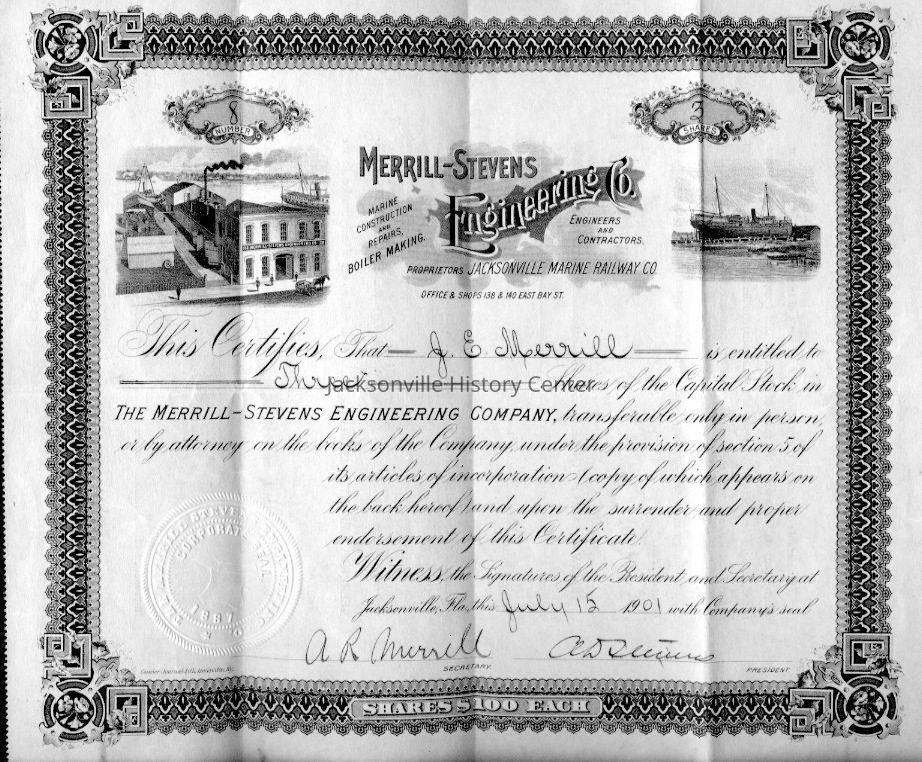 8
NUMBER
3
SHARES
MERRILL-STEVENS
Engineering Co.
MARINE
CONSTRUCTION
AND
REPAIRS,
BOILER MAKING.
ENGINEERS
AND
CONTRACTORS.
PROPRIETORS JACKSONVILLE MARINE RAILWAY CO.
OFFICE & SHOPS 138 & 140 EAST BAY ST.
This Certifies, That J. E. Merrill is entitled to
Three Shares of the Capital Stock in
Jacksonville History Center
THE MERRILL-STEVENS ENGINEERING COMPANY, transferable only in person
or by attorney on the books of the Company, under the provision of section 5 of
its articles of incorporation (copy of which appears on
the back hereof) and upon the surrender and proper
endorsement of this Certificate.
Witness, the Signatures of the President and Secretary at
Jacksonville, Fla., this July 15 1901 with Company's seal
CORPORATE SEAL
1887
A R Merrill
SECRETARY.
PRESIDENT.
SHARES $100 EACH